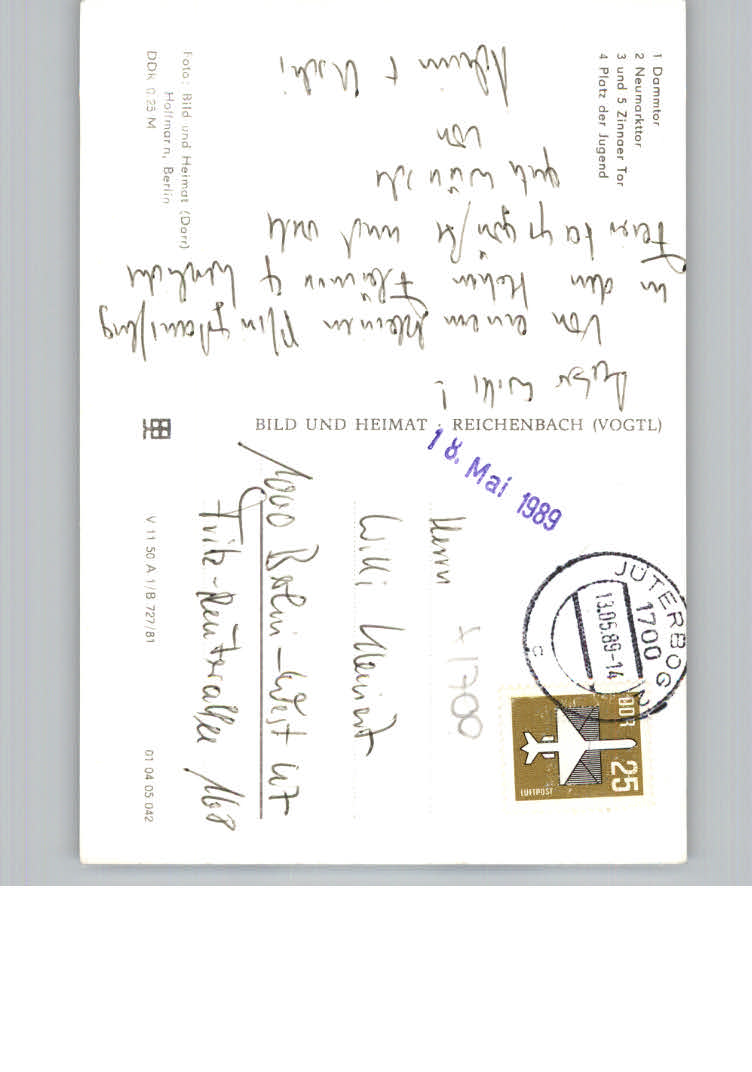 1 Dammtor
2 Neumarkttor
3 und 5 Zinnaer Tor
4 Platz der Jugend
Lieber Willi!
Von einem kleinen
in den Hohen Fläming
Feiertagsgrüße und viele
gute Wünsche
von
+ Uschi
Foto: Bild und Heimat (Darr)
Hoffmann, Berlin
DDR 0,25 M
BILD UND HEIMAT · REICHENBACH (VOGTL)
18. Mai 1989
JÜTERBOG
1700
13.05.89-14
c
DDR 25
LUFTPOST
+ 1700
Herrn
Willi
1000 Berlin-West 47
Fritz-Reuterallee 168
V 11 50 A 1/B 727/81
01 04 05 042